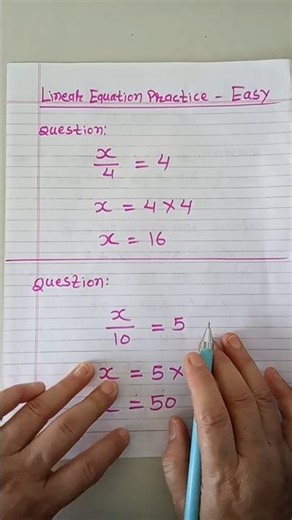 Linear Equation Practice - Easy
Question:
x/4 = 4
x = 4 × 4
x = 16
Question:
x/10 = 5
x = 5 ×
= 50